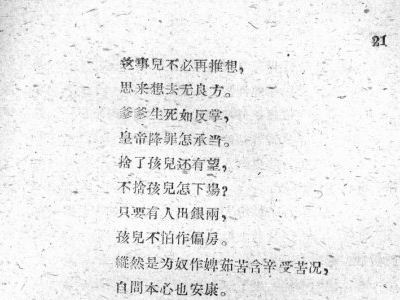 21
这事兒不必再推想，
思来想去无良方。
爹爹生死如反掌，
皇帝降罪怎承当。
捨了孩兒还有望，
不捨孩兒怎下場？
只要有人出銀兩，
孩兒不怕作偏房。
縱然是为奴作婢茹苦含辛受苦况，
自問本心也安康。